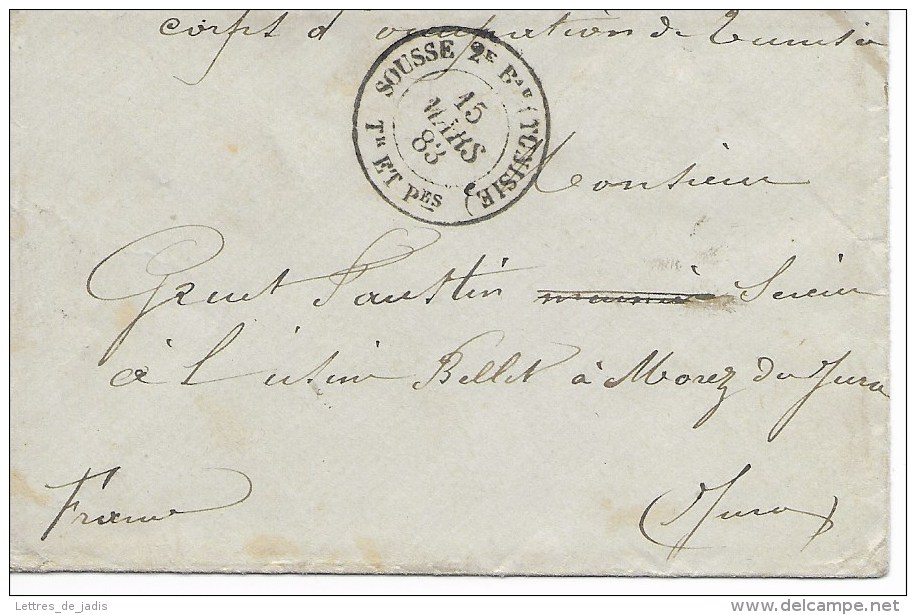 corps d'occupation de Tunisie
SOUSSE 2E BAE (TUNISIE)
15
MARS
83
TR ET PES
Monsieur
Gruet Faustin Scieur
à L'usine Bellet à Morez du Jura
France
(Jura)
Lettres_de_jadis
delcampe.net